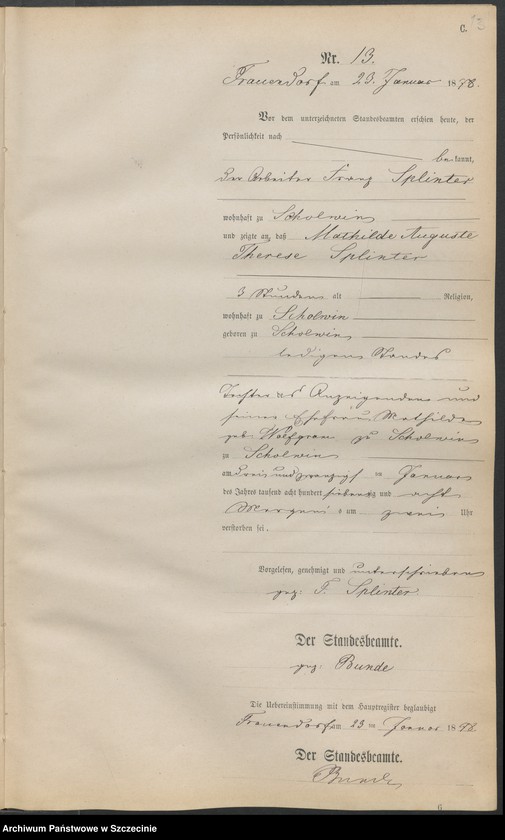 C. 13
Nr. 13.
Frauendorf am 23. Januar 1878.
Vor dem unterzeichneten Standesbeamten erschien heute, der
Persönlichkeit nach
bekannt,
der Arbeiter Franz Splinter
wohnhaft zu Scholwin
und zeigte an, daß Mathilde Auguste
Therese Splinter
3 Stunden alt Religion,
wohnhaft zu Scholwin
geboren zu Scholwin
ledigen Standes
Tochter des Anzeigenden und
seiner Ehefrau Mathilde
geb. Wolfgram zu Scholwin
zu Scholwin
am drei und zwanzigsten Januar
des Jahres tausend acht hundert siebenzig und acht
Morgens um zwei Uhr
verstorben sei.
Vorgelesen, genehmigt und unterschrieben
gez: F. Splinter
Der Standesbeamte.
gez: Bunde
Die Uebereinstimmung mit dem Hauptregister beglaubigt
Frauendorf am 23 ten Januar 1878.
Der Standesbeamte.
Bunde
6
Archiwum Państwowe w Szczecinie